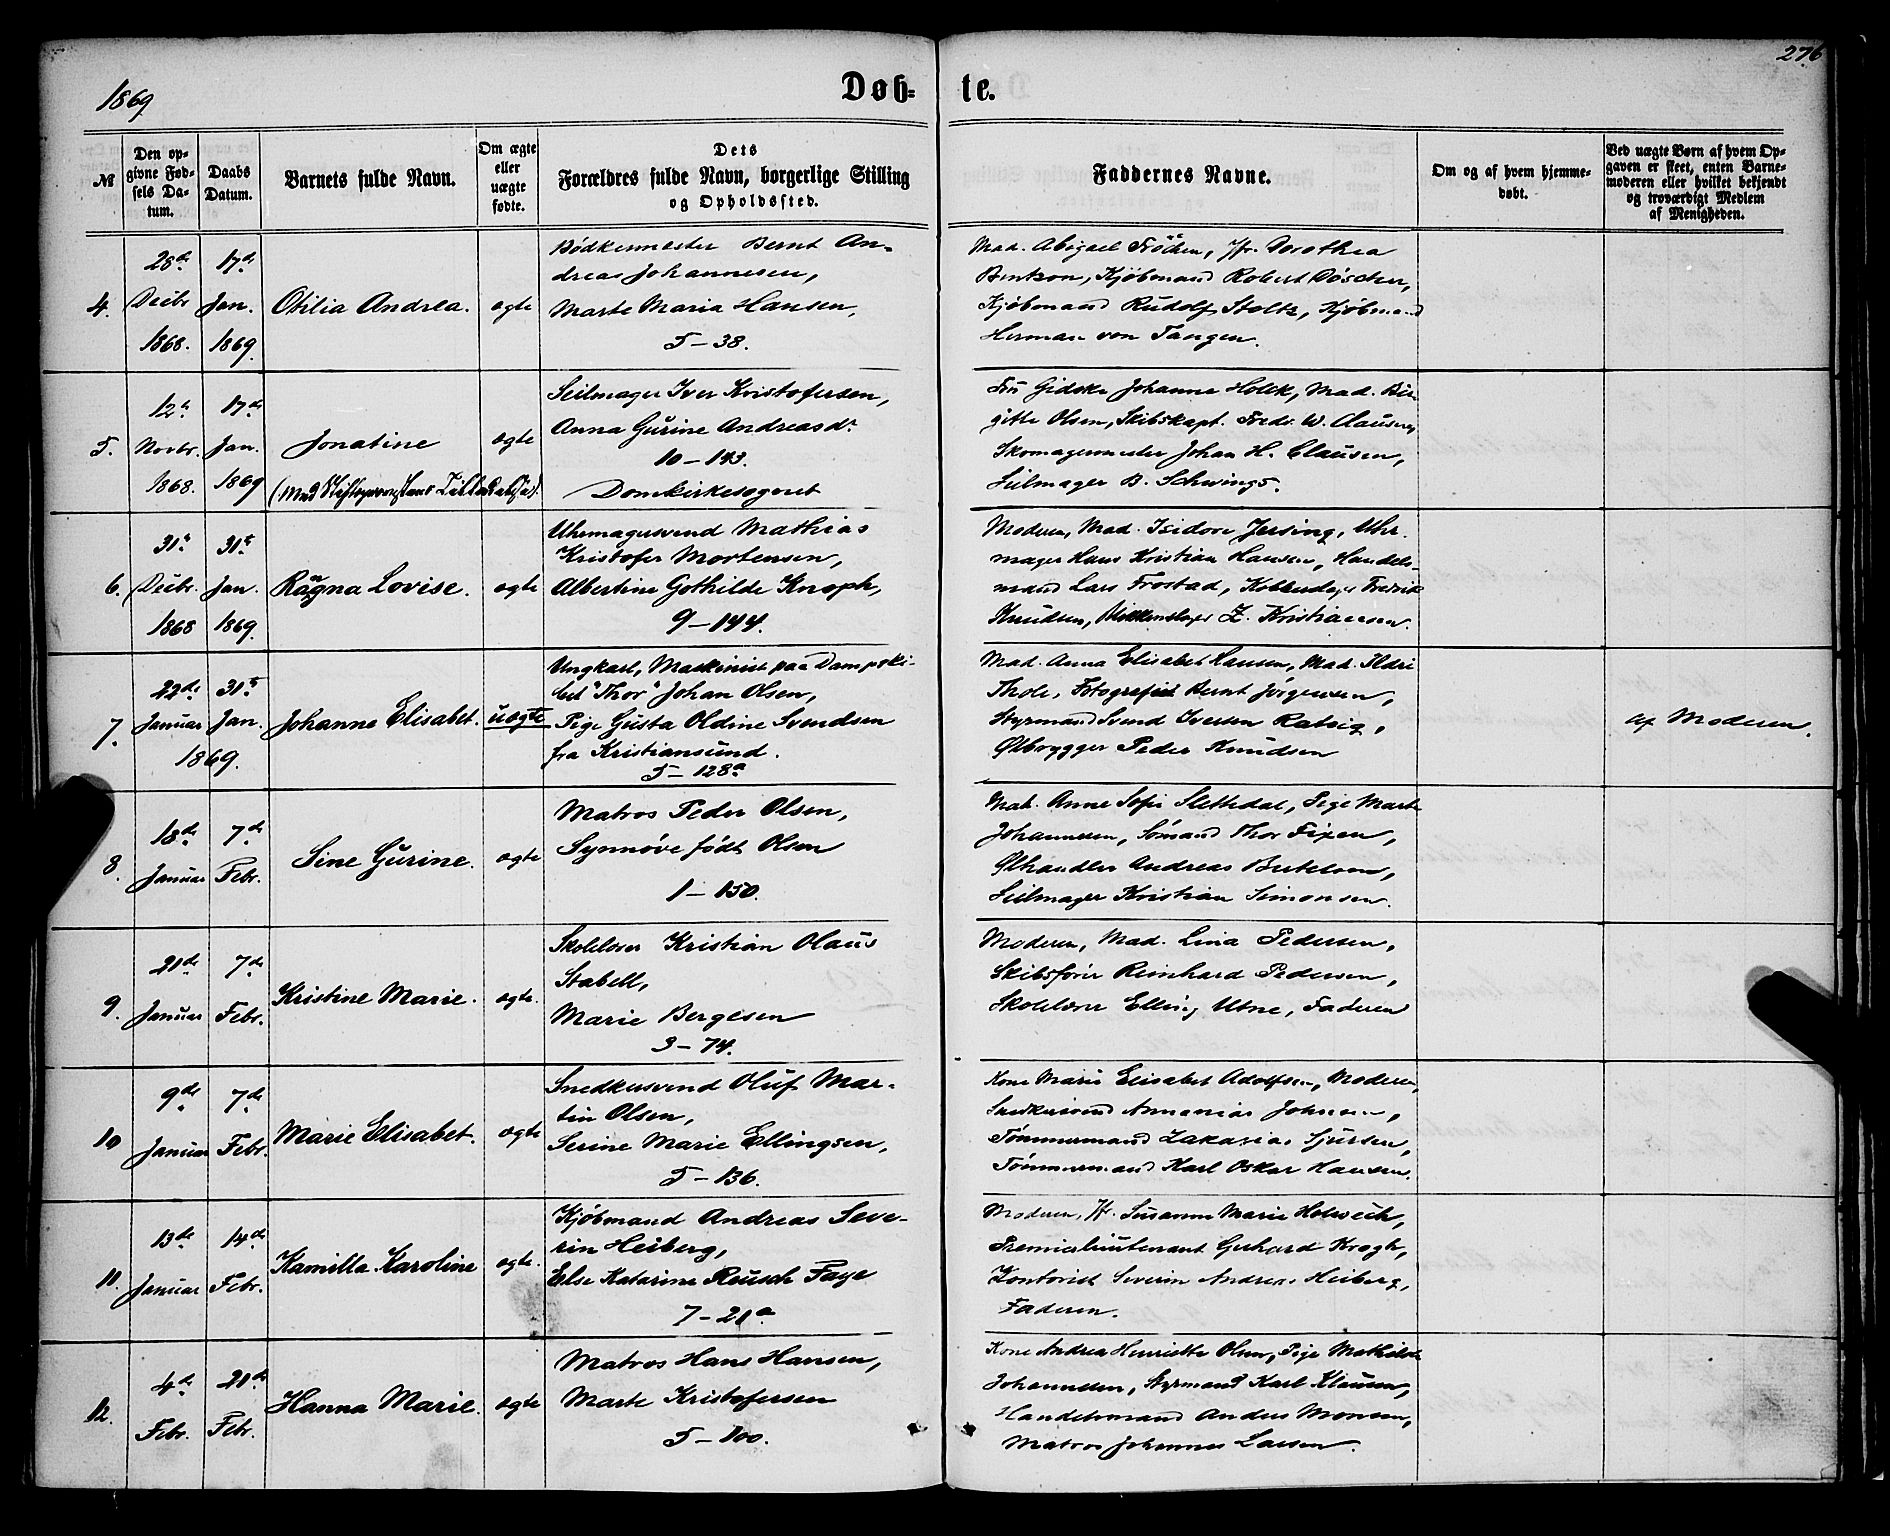 276
1869
Døb- te.
№
Den op-
givne Fød-
sels Da-
tum.
Daabs
Datum.
Barnets fulde Navn.
Om ægte
eller
uægte
fødte.
Dets
Forældres fulde Navn, borgerlige Stilling
og Opholdssted.
Faddernes Navne.
Om og af hvem hjemme-
døbt.
Ved uægte Børn af hvem Op-
gaven er skeet, enten Barne-
moderen eller hvilket bekjendt
og troværdigt Medlem
af Menigheden.
4.
28de
Decbr
1868.
17de
Jan.
1869
Otilia Andrea.
ægte
Bødkermester Bernt An-
dreas Johannesen,
Marte Maria Hansen,
5-38.
Mad. Abigael Fröchen, Jfr. Dorothea
Berntson, Kjøbmand Robert Döscher,
Kjøbmand Rudolf Stoltz, Kjøbmand
Herman von Tangen.
5.
12te
Novbr.
1868.
17de
Jan.
1869
Jonatine
ægte
Seilmager Iver Kristofersen,
Anna Gurine Andreasdr
10-143.
Domkirkesognet
Fru Gidske Johanne Holck, Mad. Bir-
gitte Olsen, Skibskapt. Fredr. W. Clausen,
Skomagermester Johan H. Clausen,
Seilmager B. Schwings.
6.
31te
Decbr.
1868
31te
Jan.
1869.
Ragna Lovise.
ægte
Uhrmagersvend Mathias
Kristofer Mortensen,
Albertine Gothilde Knoph,
9-144.
Moderen, Mad. Isidore Jersing, Uhr-
mager Hans Kristian Hansen, Handels-
mand Lars Frostad, Kobberslager Fredrik
Knudsen, Blikkenslager Z. Kristiansen.
7.
22de
Januar
31te
Jan.
1869.
Johanne Elisabet.
uægte
Ungkarl, Maskinist paa Dampski-
bet "Thor" Johan Olsen,
Pige Gusta Oldine Svendsen
fra Kristiansund.
5-128a
Mad. Anna Elisabet Hansen, Mad. Ildri
Thole, Fotografist Bernt Jörgensen,
Styrmand Svend Iversen Ratvig,
Ølbrygger Peder Knudsen
af Moderen.
8.
18de
Januar
7de
Febr.
Sine Gurine.
ægte
Matros Peder Olsen,
Synnøve født Olsen
1-150.
Mad. Anne Sofie Slettedal, Pige Marte
Johannesen, Sömand Thor Fixen,
Ølhandler Andreas Bertelsen,
Seilmager Kristian Simonsen.
9.
20de
Januar
7de
Febr.
Kristine Marie.
ægte.
Skolelærer Kristian Olaus
Stabell,
Marie Bergesen
3-74.
Moderen, Mad. Lina Pedersen,
Skibsförer Reinhard Pedersen,
Skolelærer Elling Utne, Faderen
10
9de
Januar
7de
Febr.
Marie Elisabet.
ægte
Snedkersvend Oluf Mar-
tin Olsen,
Serine Marie Ellingsen,
5-136.
Kone Marie Elisabet Adolfsen, Moderen,
Snedkersvend Annanias Johnsen,
Tömmermand Zakarias Sjursen,
Tömmermand Karl Oskar Hansen.
11.
13de
Januar
14de
Febr.
Kamilla Karoline
ægte.
Kjøbmand Andreas Seve-
rin Heiberg,
Else Katarine Reusch Faye
7-21a
Moderen, Jfr. Susanne Marie Holweck,
Premierlieutenant Gerhard Krogh,
Kontorist Severin Andreas Heiberg,
Faderen.
12.
4de
Febr.
21de
Febr.
Hanna Marie.
ægte
Matros Hans Hansen,
Marte Kristofersen
5-100.
Kone Andrea Henriette Olsen, Pige Mathilde
Johannesen, Styrmand Karl Klausen,
Handelsmand Anders Monsen,
Matros Johannes Larsen.